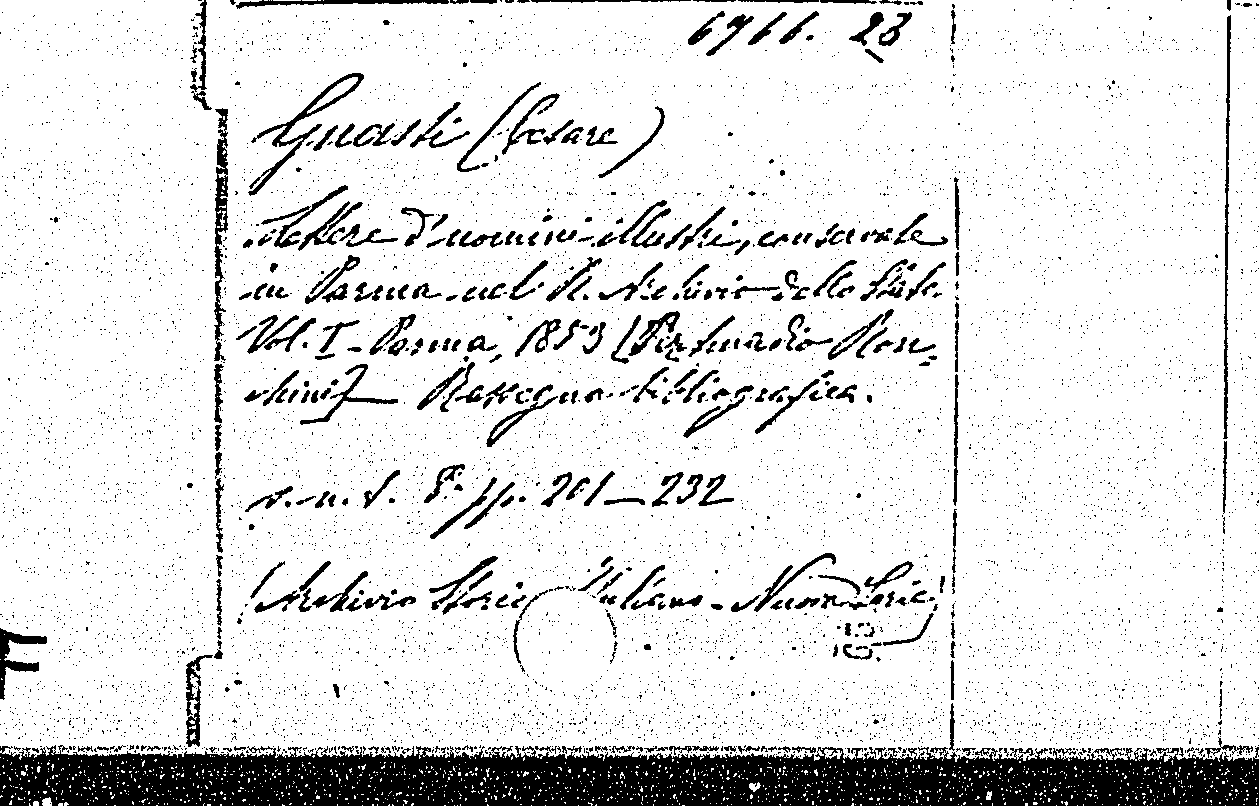 6766. 28
Guasti (Cesare)
Lettere d'uomini illustri, conservate
in Parma nel R. Archivio dello Stato.
Vol. I - Parma, 1853 [Per Amadio Ron-
chini] — Rassegna bibliografica.
s. n. t. 8° pp. 201—232
(Archivio Storico Italiano - Nuova Serie)